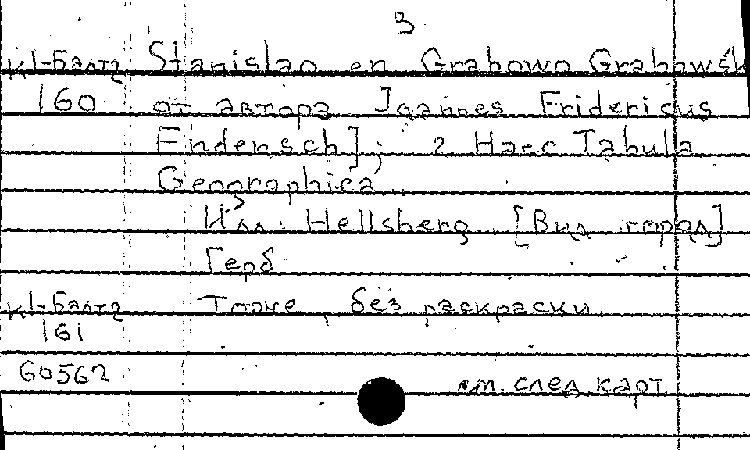 3
к1-Балт2 Stanislao en Grabowo Grabowsk
160 от автора Ioannes Fridericus
Endersch]; 2 Haec Tabula
Geographica
Илл: Hellsberg [Вид города]
Герб
к1-Балт2 Тоже, без раскраски
161
60562 см. след карт